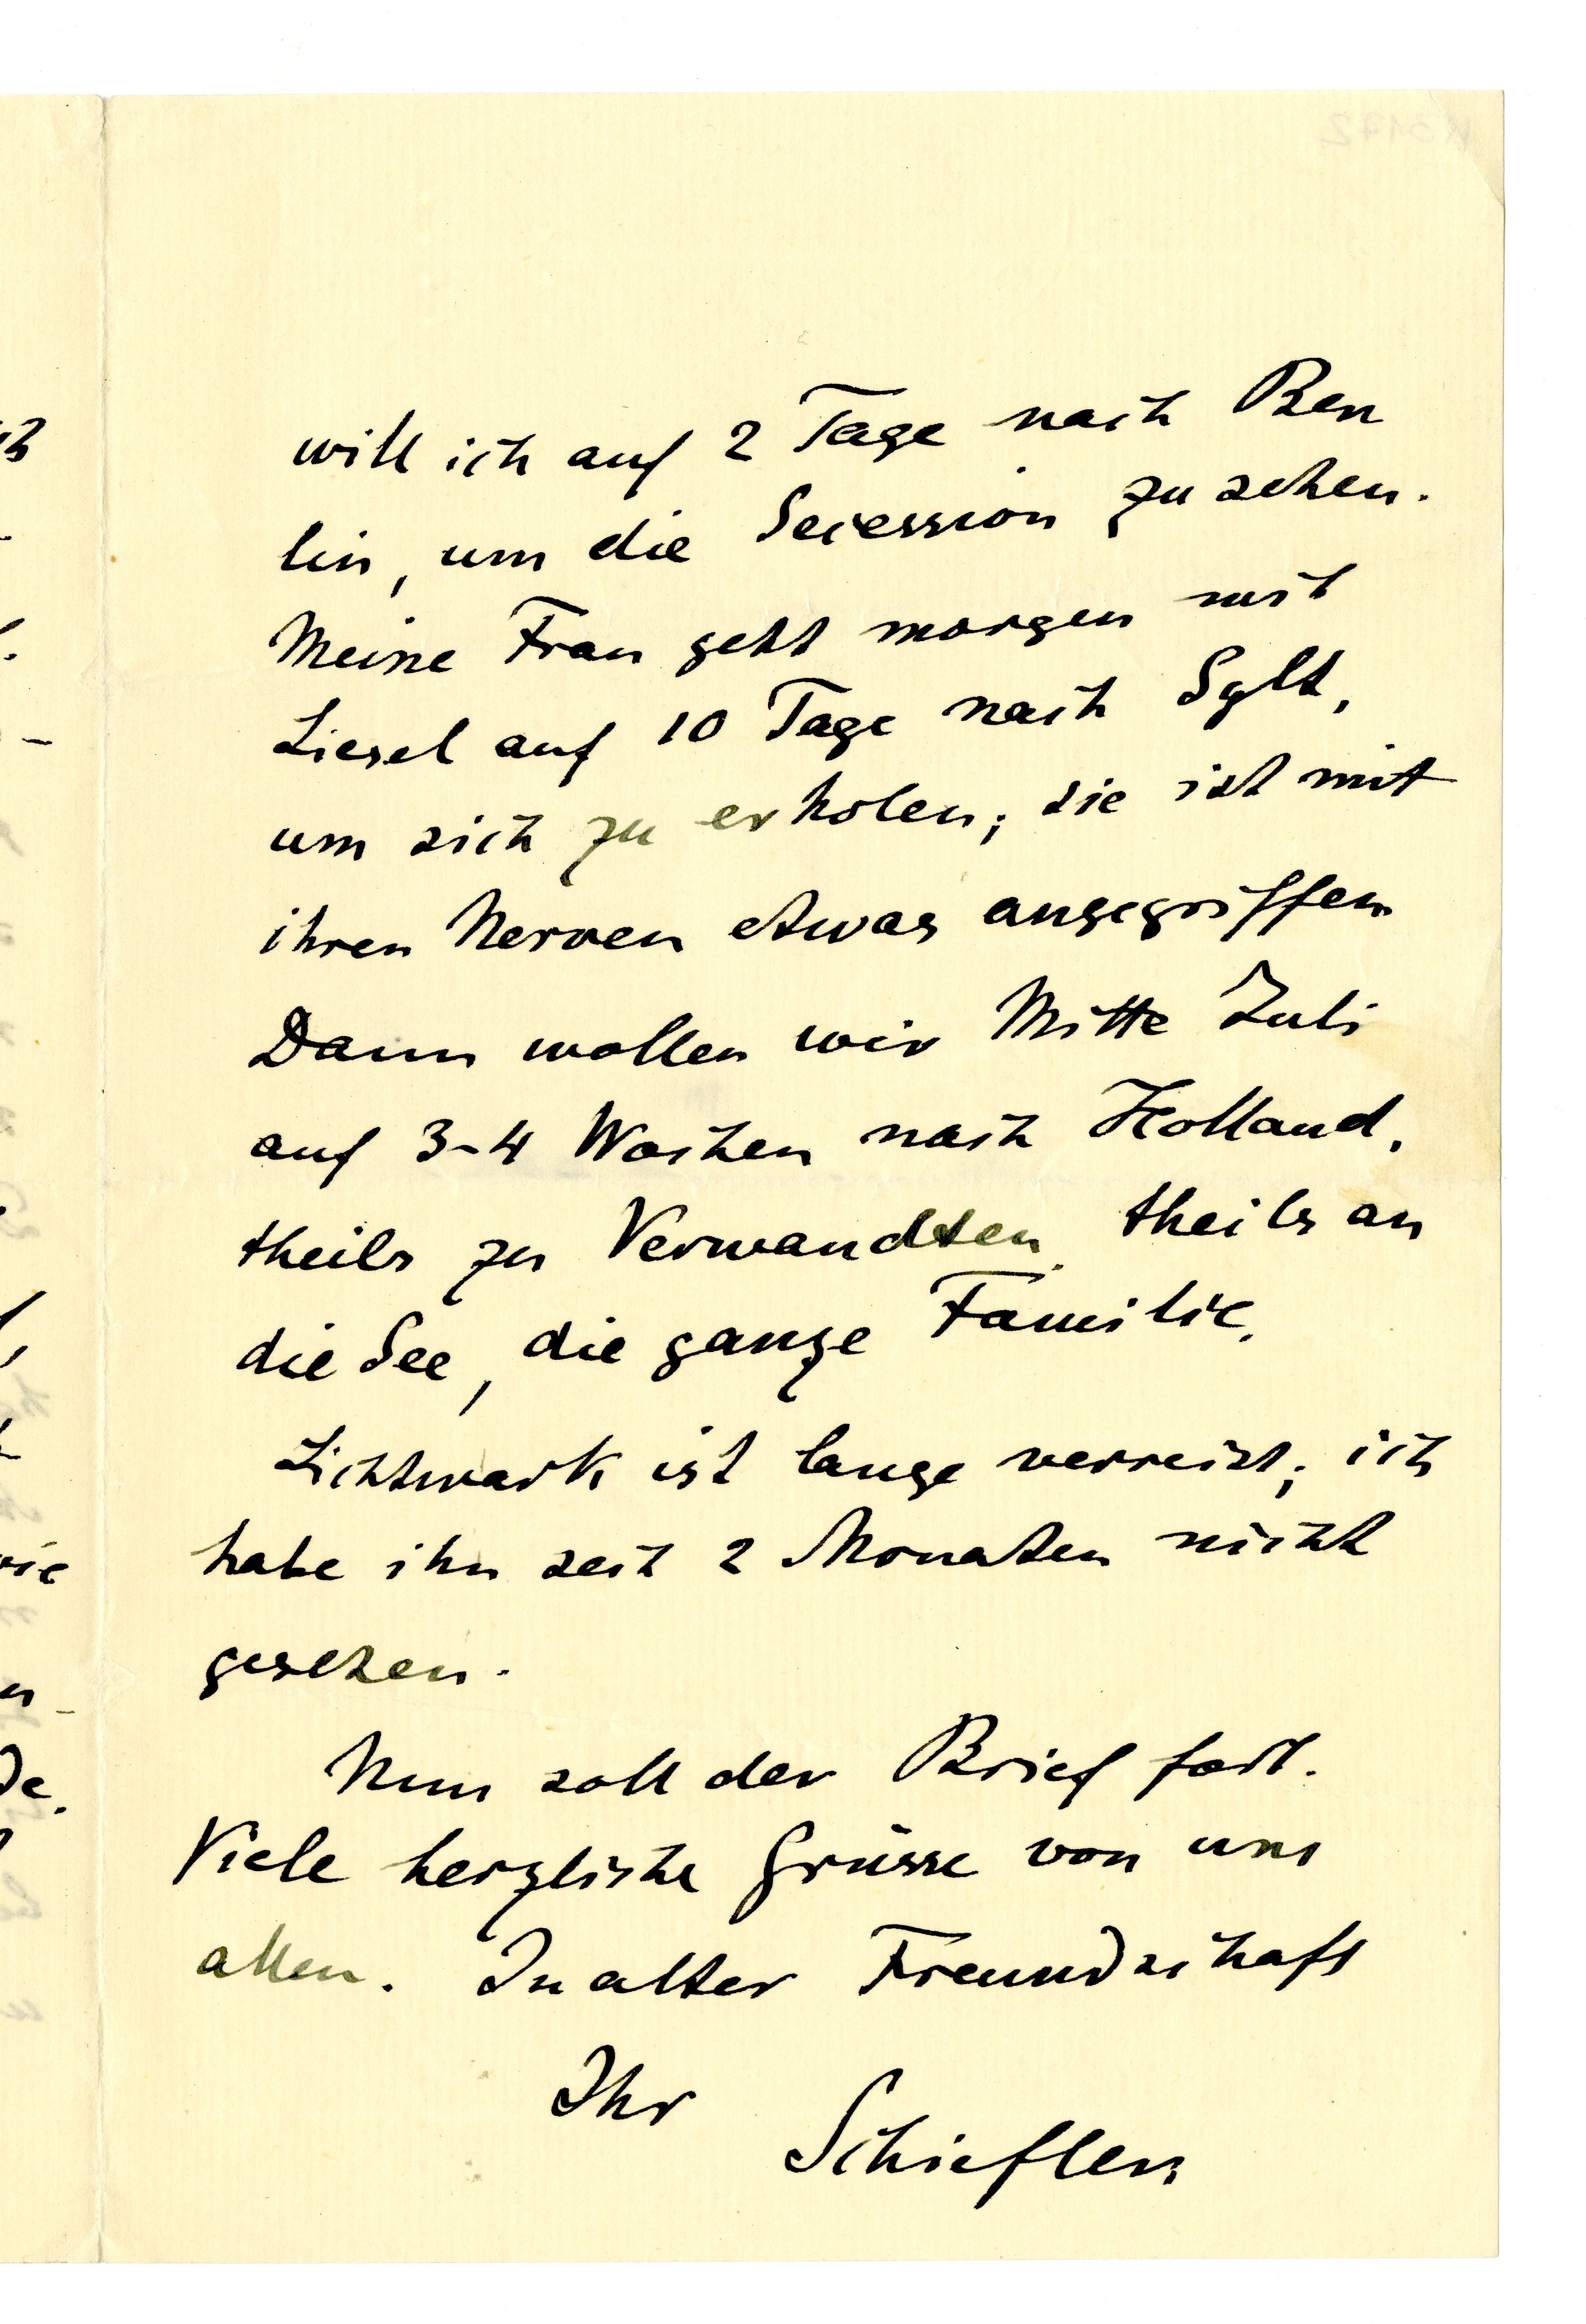 will ich auf 2 Tage nach Ber
lin, um die Secession zu sehen.
Meine Frau geht morgen mit
Liesel auf 10 Tage nach Sylt,
um sich zu erholen; sie ist mit
ihren Nerven etwas angegriffen
Dann wollen wir Mitte Juli
auf 3-4 Wochen nach Holland,
theils zu Verwandten, theils an
die See, die ganze Familie.
Lichtwark ist lange verreist; ich
habe ihn seit 2 Monaten nicht
gesehen.
Nun soll der Brief fort.
Viele herzliche Grüsse von uns
allen. In alter Freundschaft
Ihr
Schiefler